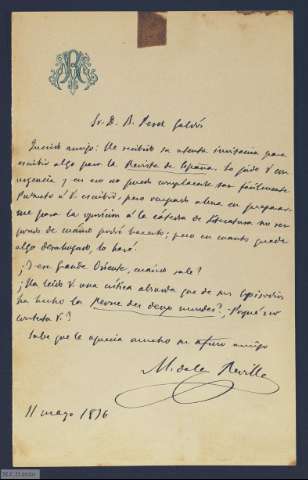 Sr. D. B. Perez Galdós
Querido amigo: He recibido su atenta invitacion para
escribir algo para la Revista de España. Lo pide V. con
urgencia y en eso no puedo complacerle tan fácilmente.
Prometo á V. escribir, pero ocupado ahora en preparar-
me para la oposicion á la cátedra de Literatura no res-
pondo de cuándo podré hacerlo; pero en cuanto quede
algo desahogado, lo haré.
¿Y ese Grande Oriente, cuándo sale?
¿Ha leido V. una crítica absurda que de sus Episodios
ha hecho la Revue des deux mondes? ¿Porqué no
contesta V.?
Sabe que le aprecia mucho su afmo amigo
M. de la Revilla
11 mayo 1876